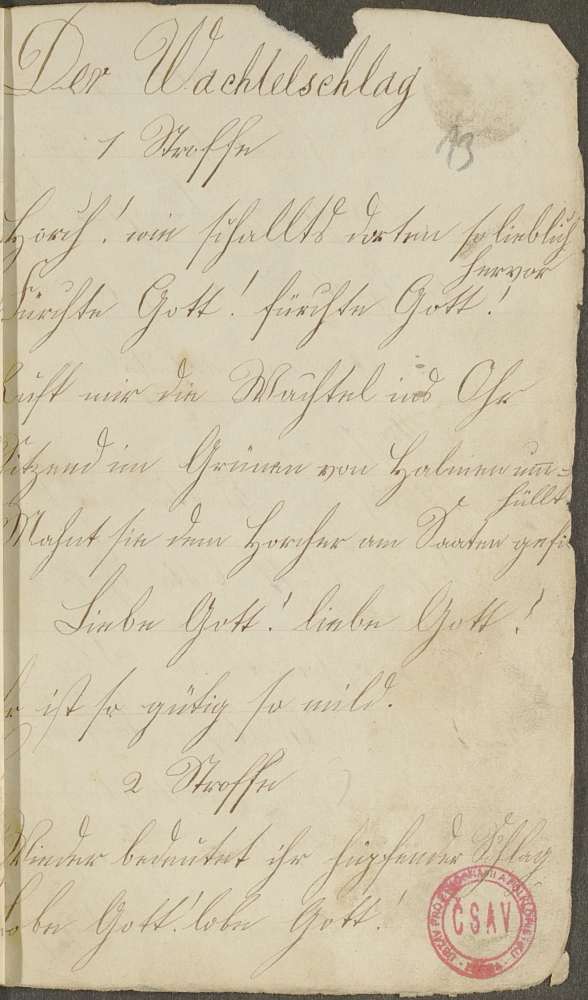 Der Wachtelschlag
13
1 Stroffe
Horch! wie schallts dorten so lieblich
hervor
Fürchte Gott! fürchte Gott!
Ruft mir die Wachtel ins Ohr
Sitzend im Grünen von Halmen um=
hüllt
Mahnt sie dem Horcher am Saaten gefil
Liebe Gott! liebe Gott!
Er ist so gütig so mild.
2 Stroffe
Wieder bedeutet ihr hüpfender Schlag
Lobe Gott! lobe Gott!
ČSAV